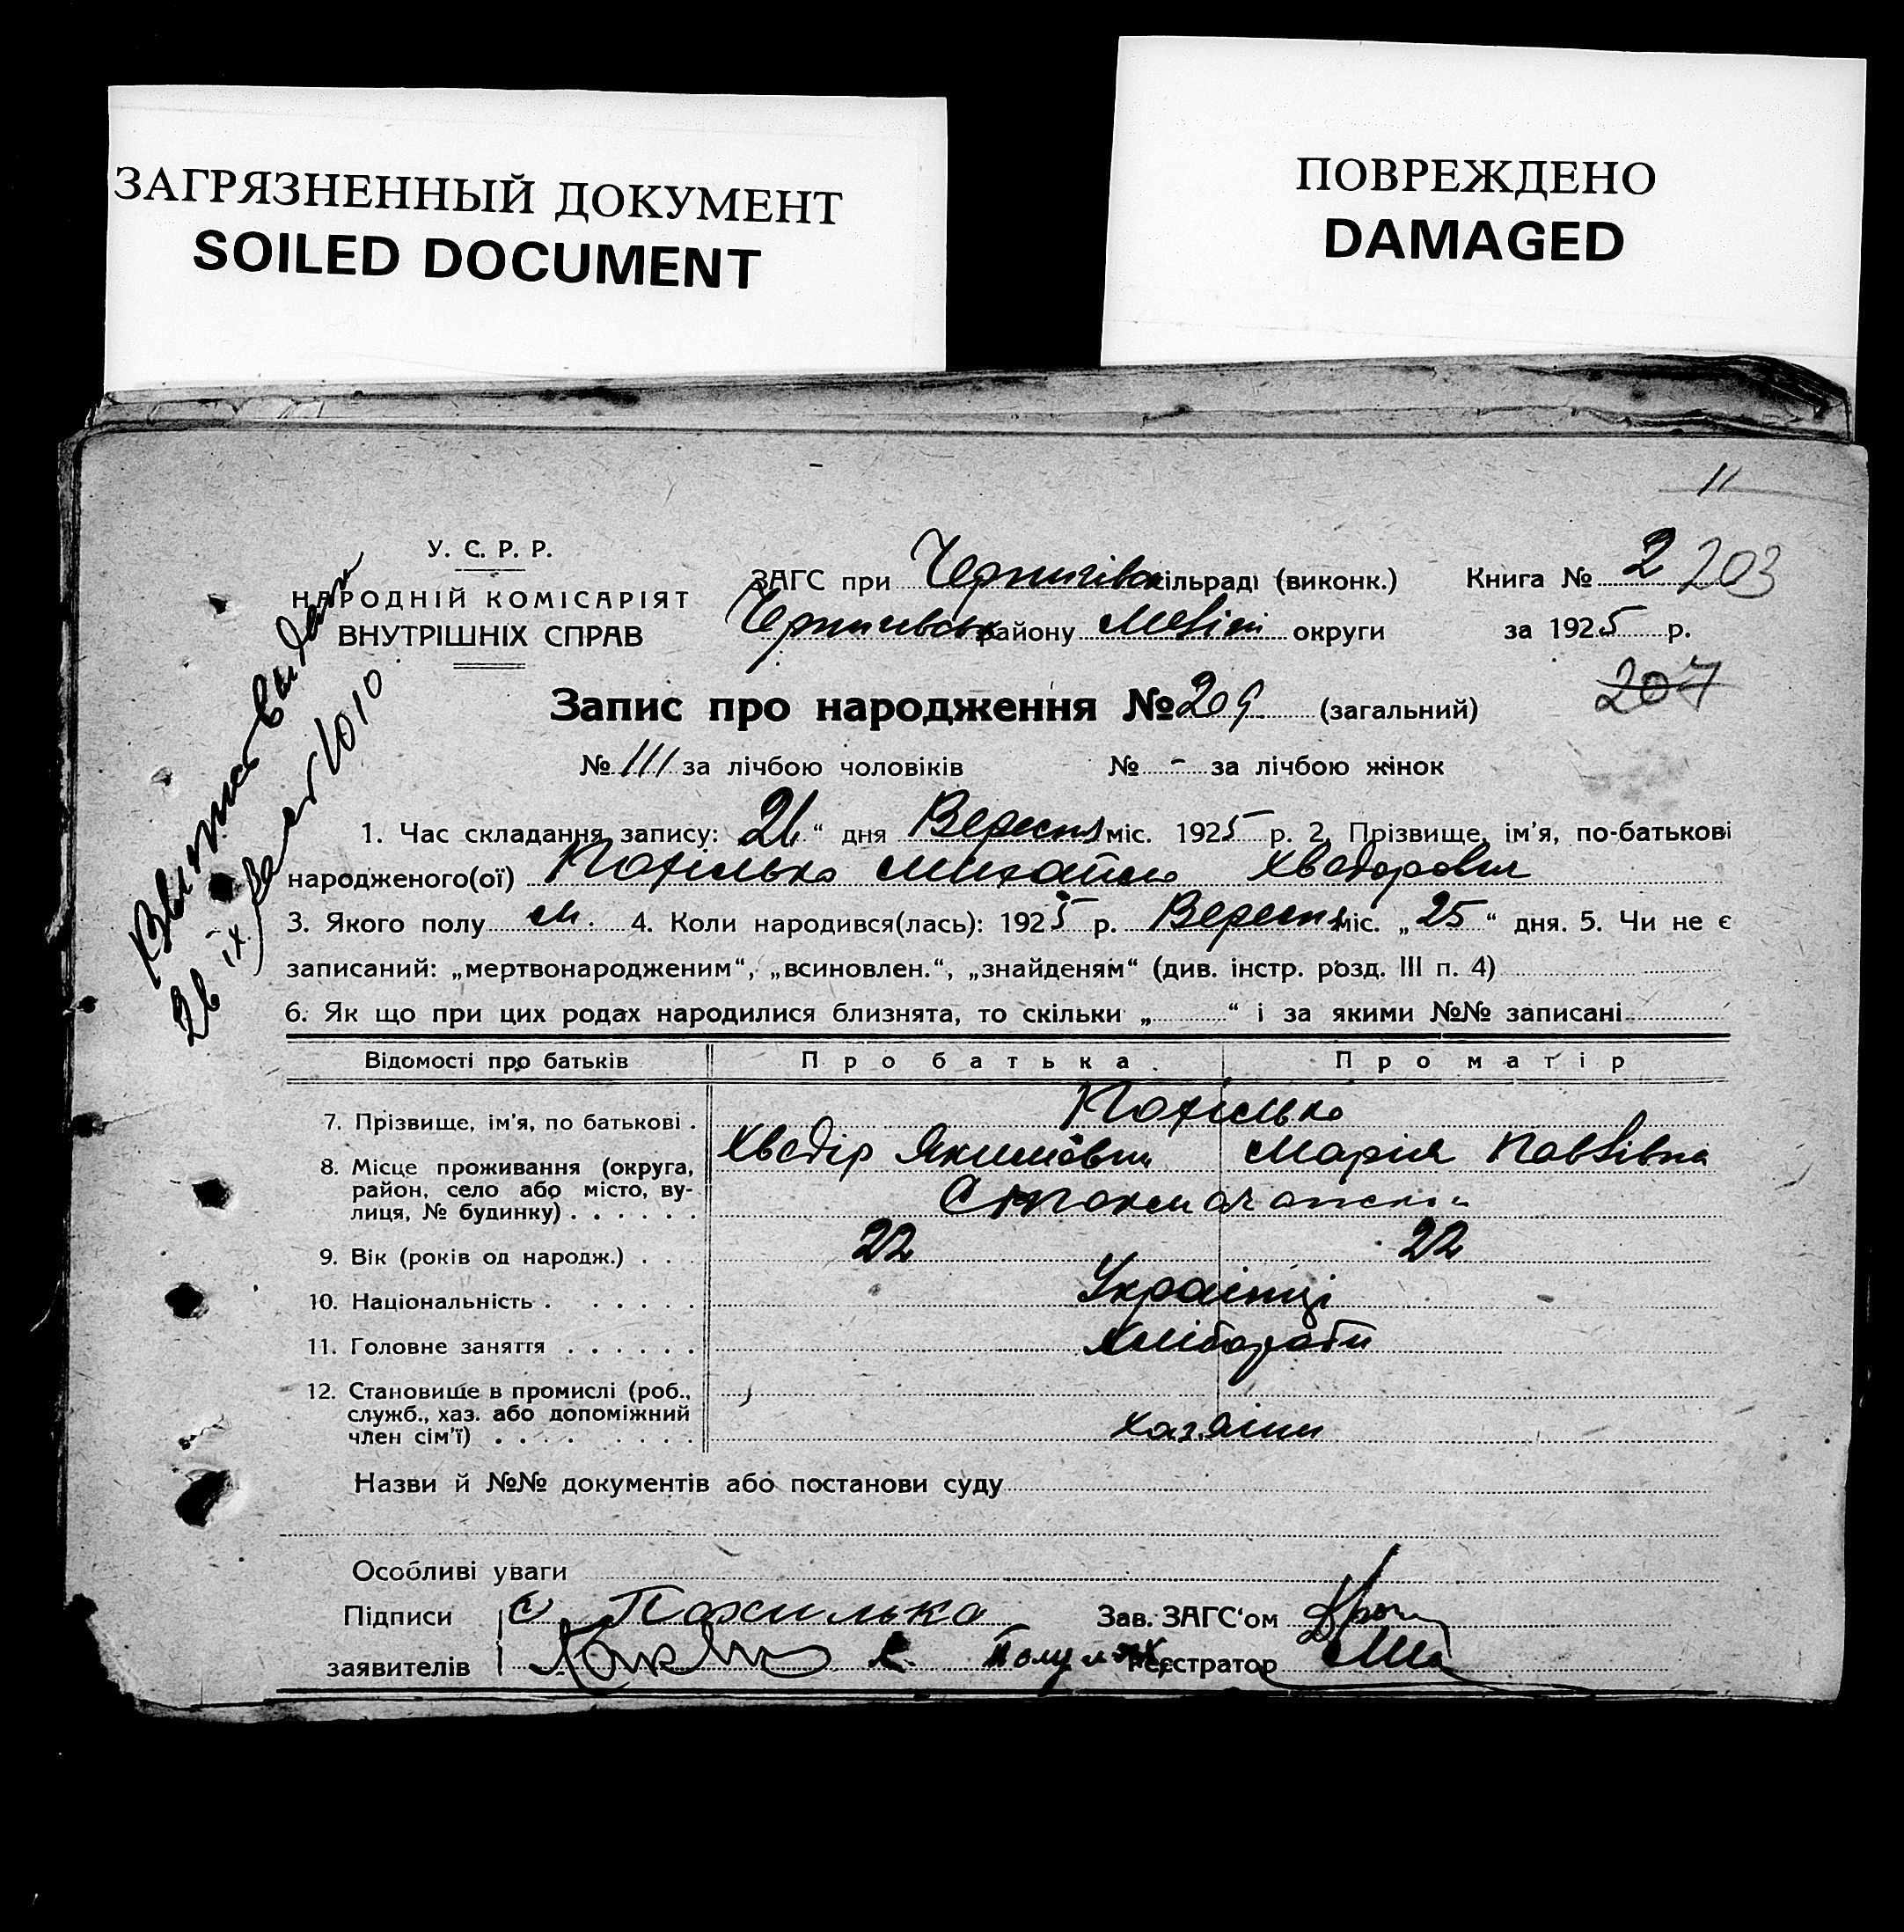 ЗАГРЯЗНЕННЫЙ ДОКУМЕНТ
SOILED DOCUMENT
ПОВРЕЖДЕНО
DAMAGED
11
У. С. Р. Р.
НАРОДНІЙ КОМІСАРІЯТ
ВНУТРІШНІХ СПРАВ
ЗАГС при Чернигівс кільраді (виконк.) Книга № 2 203
Чернигивськ району Меліт округи за 1925 р.
207
Запис про народження № 209 (загальний)
№ 111 за лічбою чоловіків № - за лічбою жінок
1. Час складання запису: 26 “ дня Вересня міс. 1925 р. 2. Прізвище, ім'я, по-батькові
народженого(ої) Похилько Михайло Хведорович
3. Якого полу м. 4. Коли народився(лась): 1925 р. Вересня міс. „25“ дня. 5. Чи не є
записаний: „мертвонародженим“, „всиновлен.“, „знайденям“ (див. інстр. розд. III п. 4)
6. Як що при цих родах народилися близнята, то скільки „ “ і за якими №№ записані
Відомості про батьків Про батька Про матір
7. Прізвище, ім'я, по батькові . Похилько
Хведір Якимович Марія Павлівна
8. Місце проживання (округа,
район, село або місто, ву-
лиця, № будинку) . . . . . .
9. Вік (років од народж.) . . . 22 22
10. Національність . . . . . . Українці
11. Головне заняття . . . . . . Хлібороби
12. Становище в промислі (роб.,
служб., хаз. або допоміжний
член сім'ї) . . . . . . . . Хазяїни
Назви й №№ документів або постанови суду
Особливі уваги
Підписи Похилько Зав. ЗАГС'ом
заявителів Реєстратор